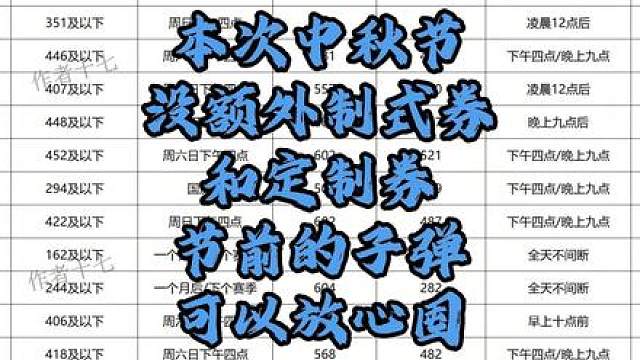 351及以下 凌晨12点后
本次中秋节
446及以下 下午四点/晚上九点
作者十七
407及以下 凌晨12点后
没额外制式券
448及以下 晚上九点后
452及以下 周六日下午四点 602 521 下午四点/晚上九点
和定制券
294及以下 下午四点/晚上九点
422及以下 周日下午四点 487 下午四点/晚上九点
节前的子弹
162及以下 全天不间断
作者十七
244及以下 一个月后/下个赛季 604 282 全天不间断
可以放心囤
406及以下 早上十点前
418及以下 周六日下午四点 568 482 下午四点/晚上九点